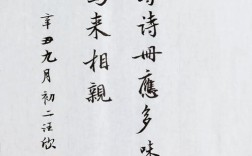 诗册應多味
来相親
辛丑九月初二汪欣